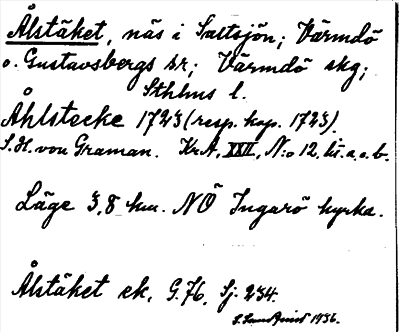 Ålstäket, näs i Saltsjön; Värmdö
o. Gustavsbergs sr; Värmdö skg;
Sthlms l.
Åhlstecke 1723 (resp. kop. 1723).
S.H. von Graman. KrA, XXII, N:o 12, lit. a. o. b.
Läge 3,8 km. NÖ Ingarö kyrka.
Ålstäket ek. G.76. Sj. 234.
S. Lundqvist 1936.